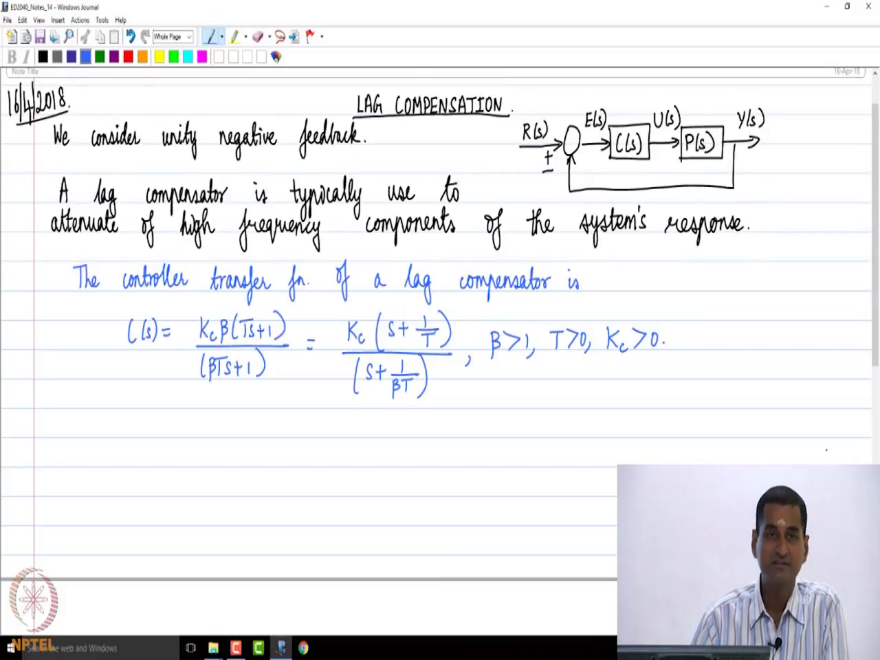 ED2040_Notes_14 - Windows Journal
File Edit View Insert Actions Tools Help
Whole Page
B I
Note Title
16-Apr-18
16/4/2018.
LAG COMPENSATION.
We consider unity negative feedback.
R(s) + - E(s) C(s) U(s) P(s) Y(s)
A lag compensator is typically use to
attenuate of high frequency components of the system's response.
The controller transfer fn. of a lag compensator is
C(s) = KcB(Ts+1) / (βTs+1) = Kc(s + 1/T) / (s + 1/βT), β>1, T>0, Kc>0.
NPTEL
web and Windows